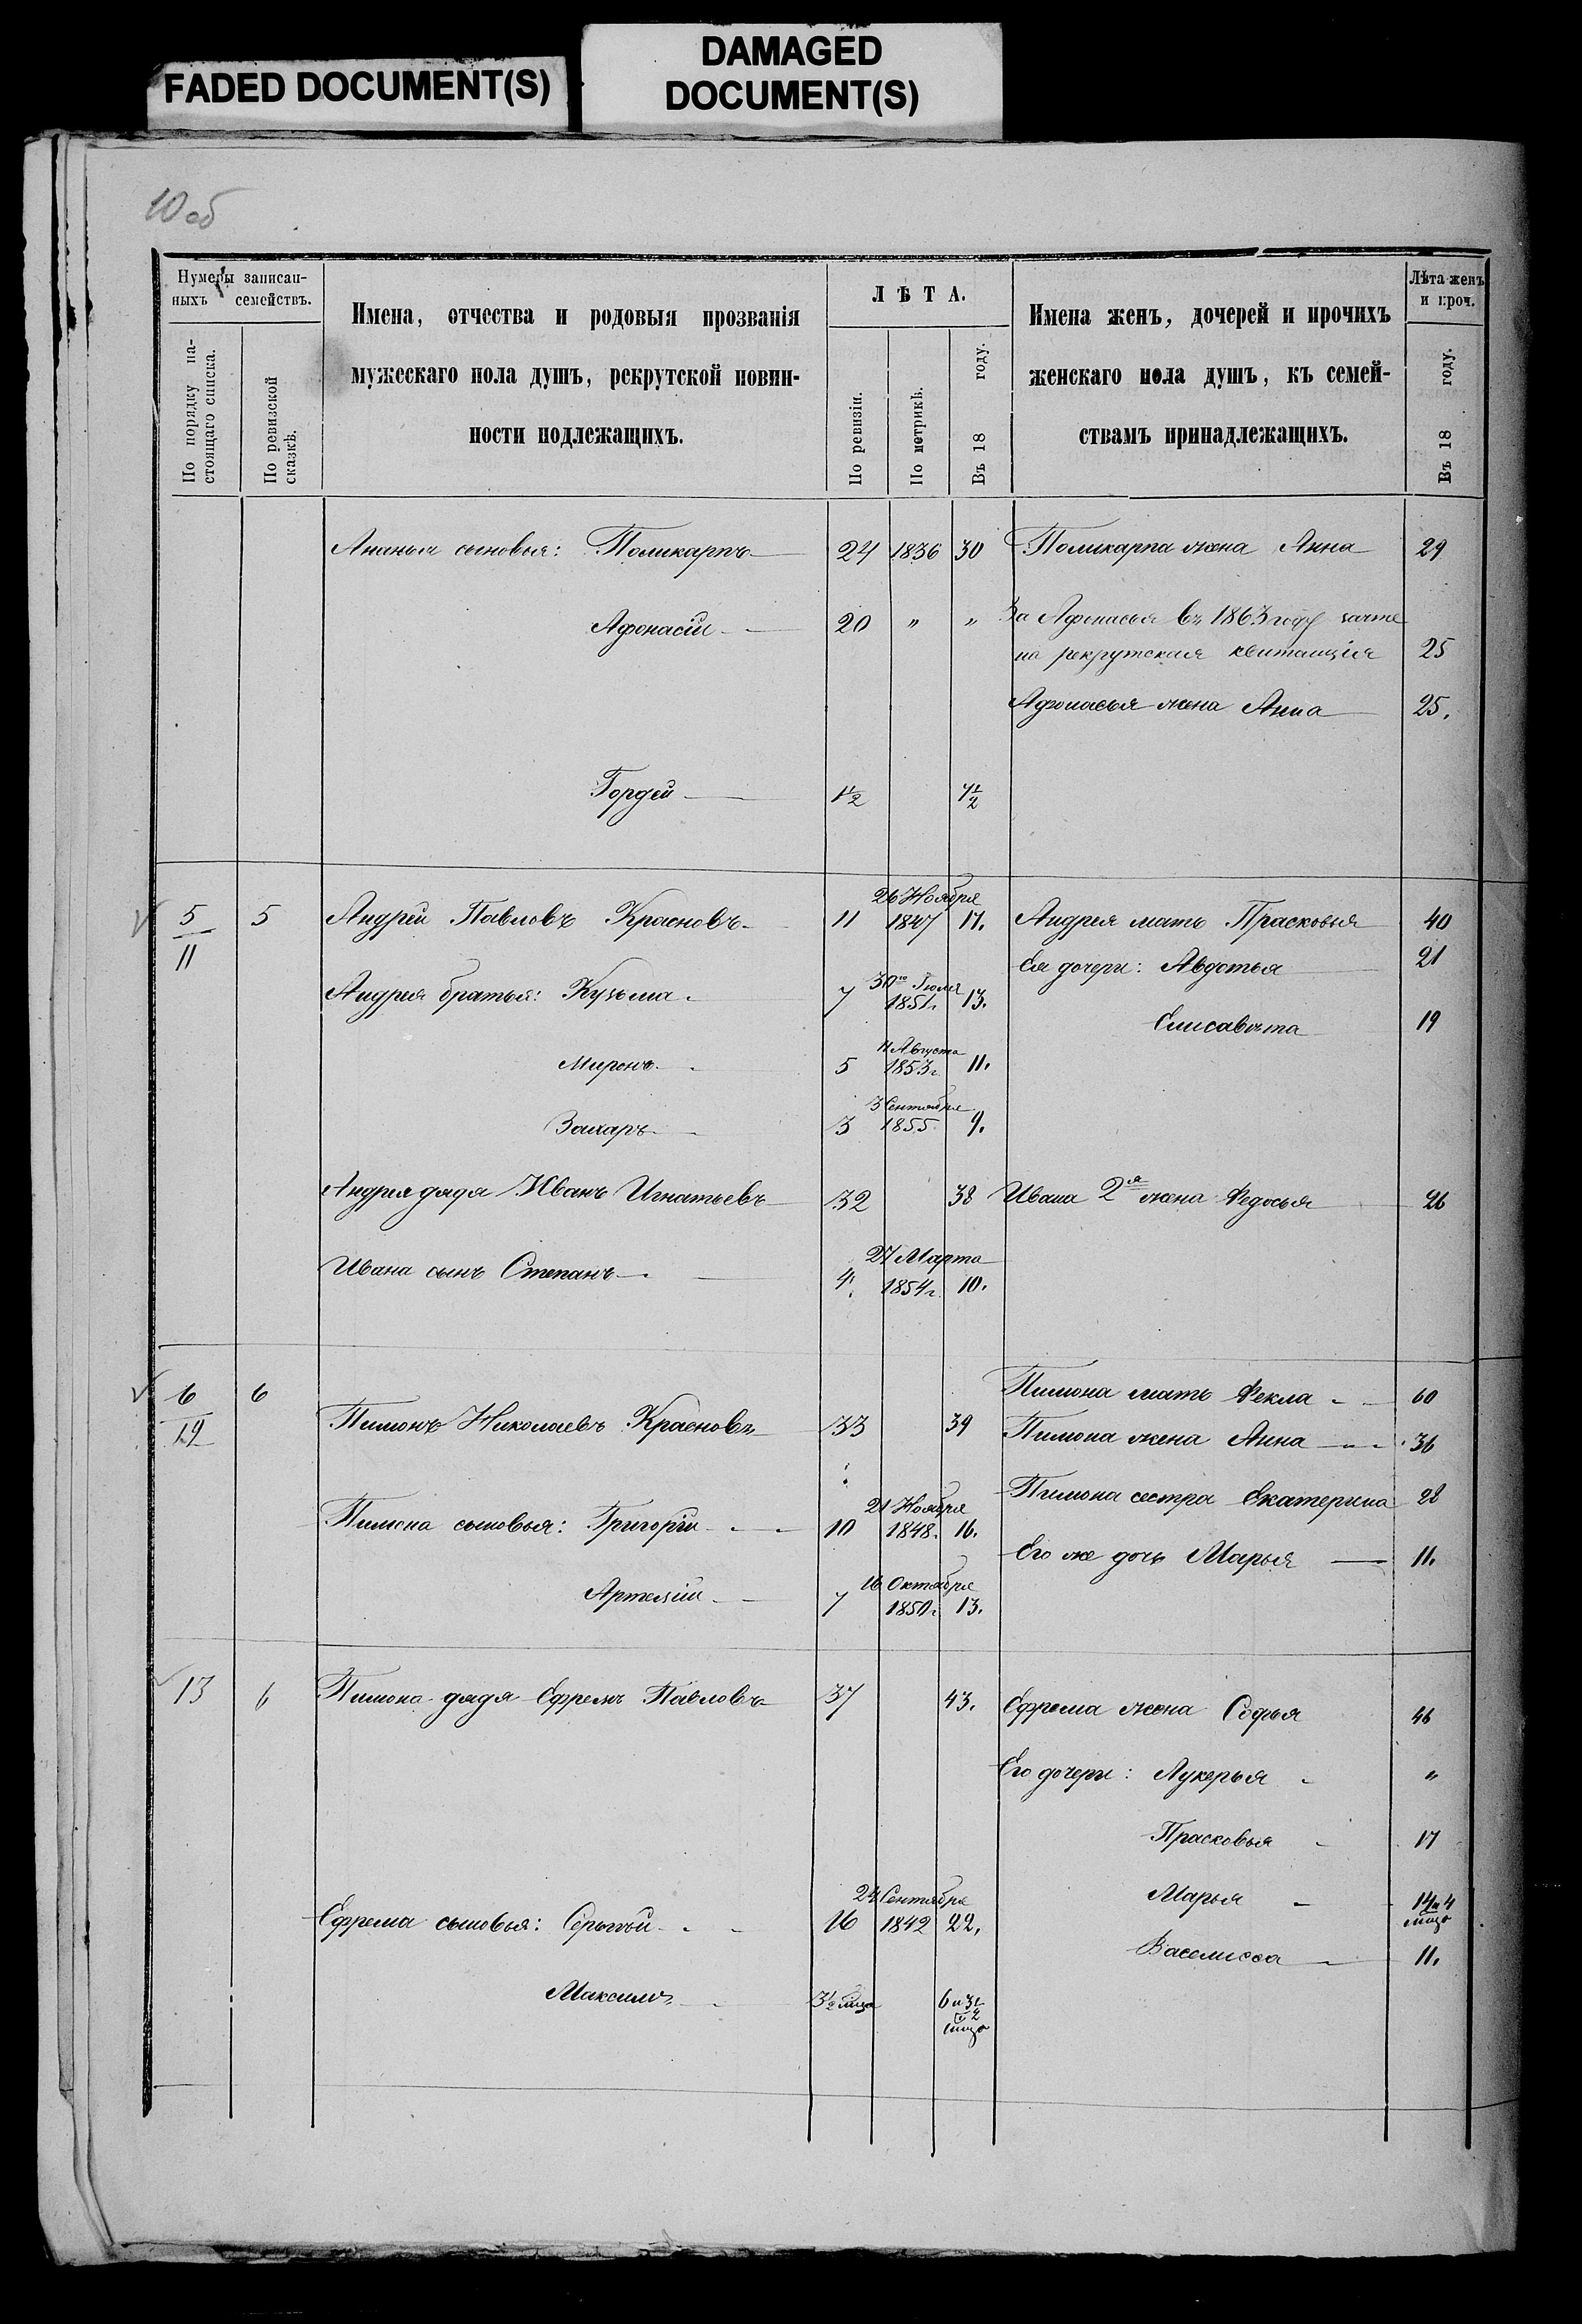 FADED DOCUMENT(S)
DAMAGED
DOCUMENT(S)
10 об
Нумеры записан-
ныхъ семействъ.
По порядку на-
стоящаго списка.
По ревизской
сказкѣ.
Имена, отчества и родовыя прозванія
мужескаго пола душъ, рекрутской повин-
ности подлежащихъ.
ЛѢТА.
По ревизіи.
По метрикѣ.
Въ 18 году.
Имена женъ, дочерей и прочихъ
женскаго пола душъ, къ семей-
ствамъ принадлежащихъ.
Лѣта женъ
и проч.
Въ 18 году.
Ананья сыновья: Поликарпъ 24 1836 30 Поликарпа жена Анна 29
Афонасій 20 " " За Афонасья въ 1863 году зачте
на рекрутская квитанція 25
Афонасья жена Анна 25.
Гордей 1½ 7½
5 5 Андрей Павловъ Красновъ 11 26 Ноября 1847 17. Андрея мать Прасковья 40
11
Ея дочери: Авдотья 21
Андрея братья: Кузьма 7 30го Іюля 1851г. 13.
Елисавѣта 19
Миронъ 5 Августа 1853г. 11.
Захаръ 3 3 Сентября 1855 9.
Андрея дядя Иванъ Игнатьевъ 32 38 Ивана 2я жена Федосья 26
Ивана сынъ Степанъ 4 27 Марта 1854г. 10.
6 6 Пимона мать Фекла 60
12 Пимонъ Николаевъ Красновъ 33 39 Пимона жена Анна 36
Пимона сестра Екатерина 28
Пимона сыновья: Григорій 10 21 Ноября 1848. 16.
Его же дочь Марья 11.
Артемій 7 16 Октября 1850г. 13.
13 6 Пимона дядя Ефремъ Павловъ 37 43. Ефрема жена Софья 46
Его дочери: Лукерья "
Прасковья 17
Марья 14 и 4
мѣця
Ефрема сыновья: Сергѣй 16 24 Сентября 1842 22.
Василисса 11.
Максимъ 3½ мѣця 6 и 3½
мѣця